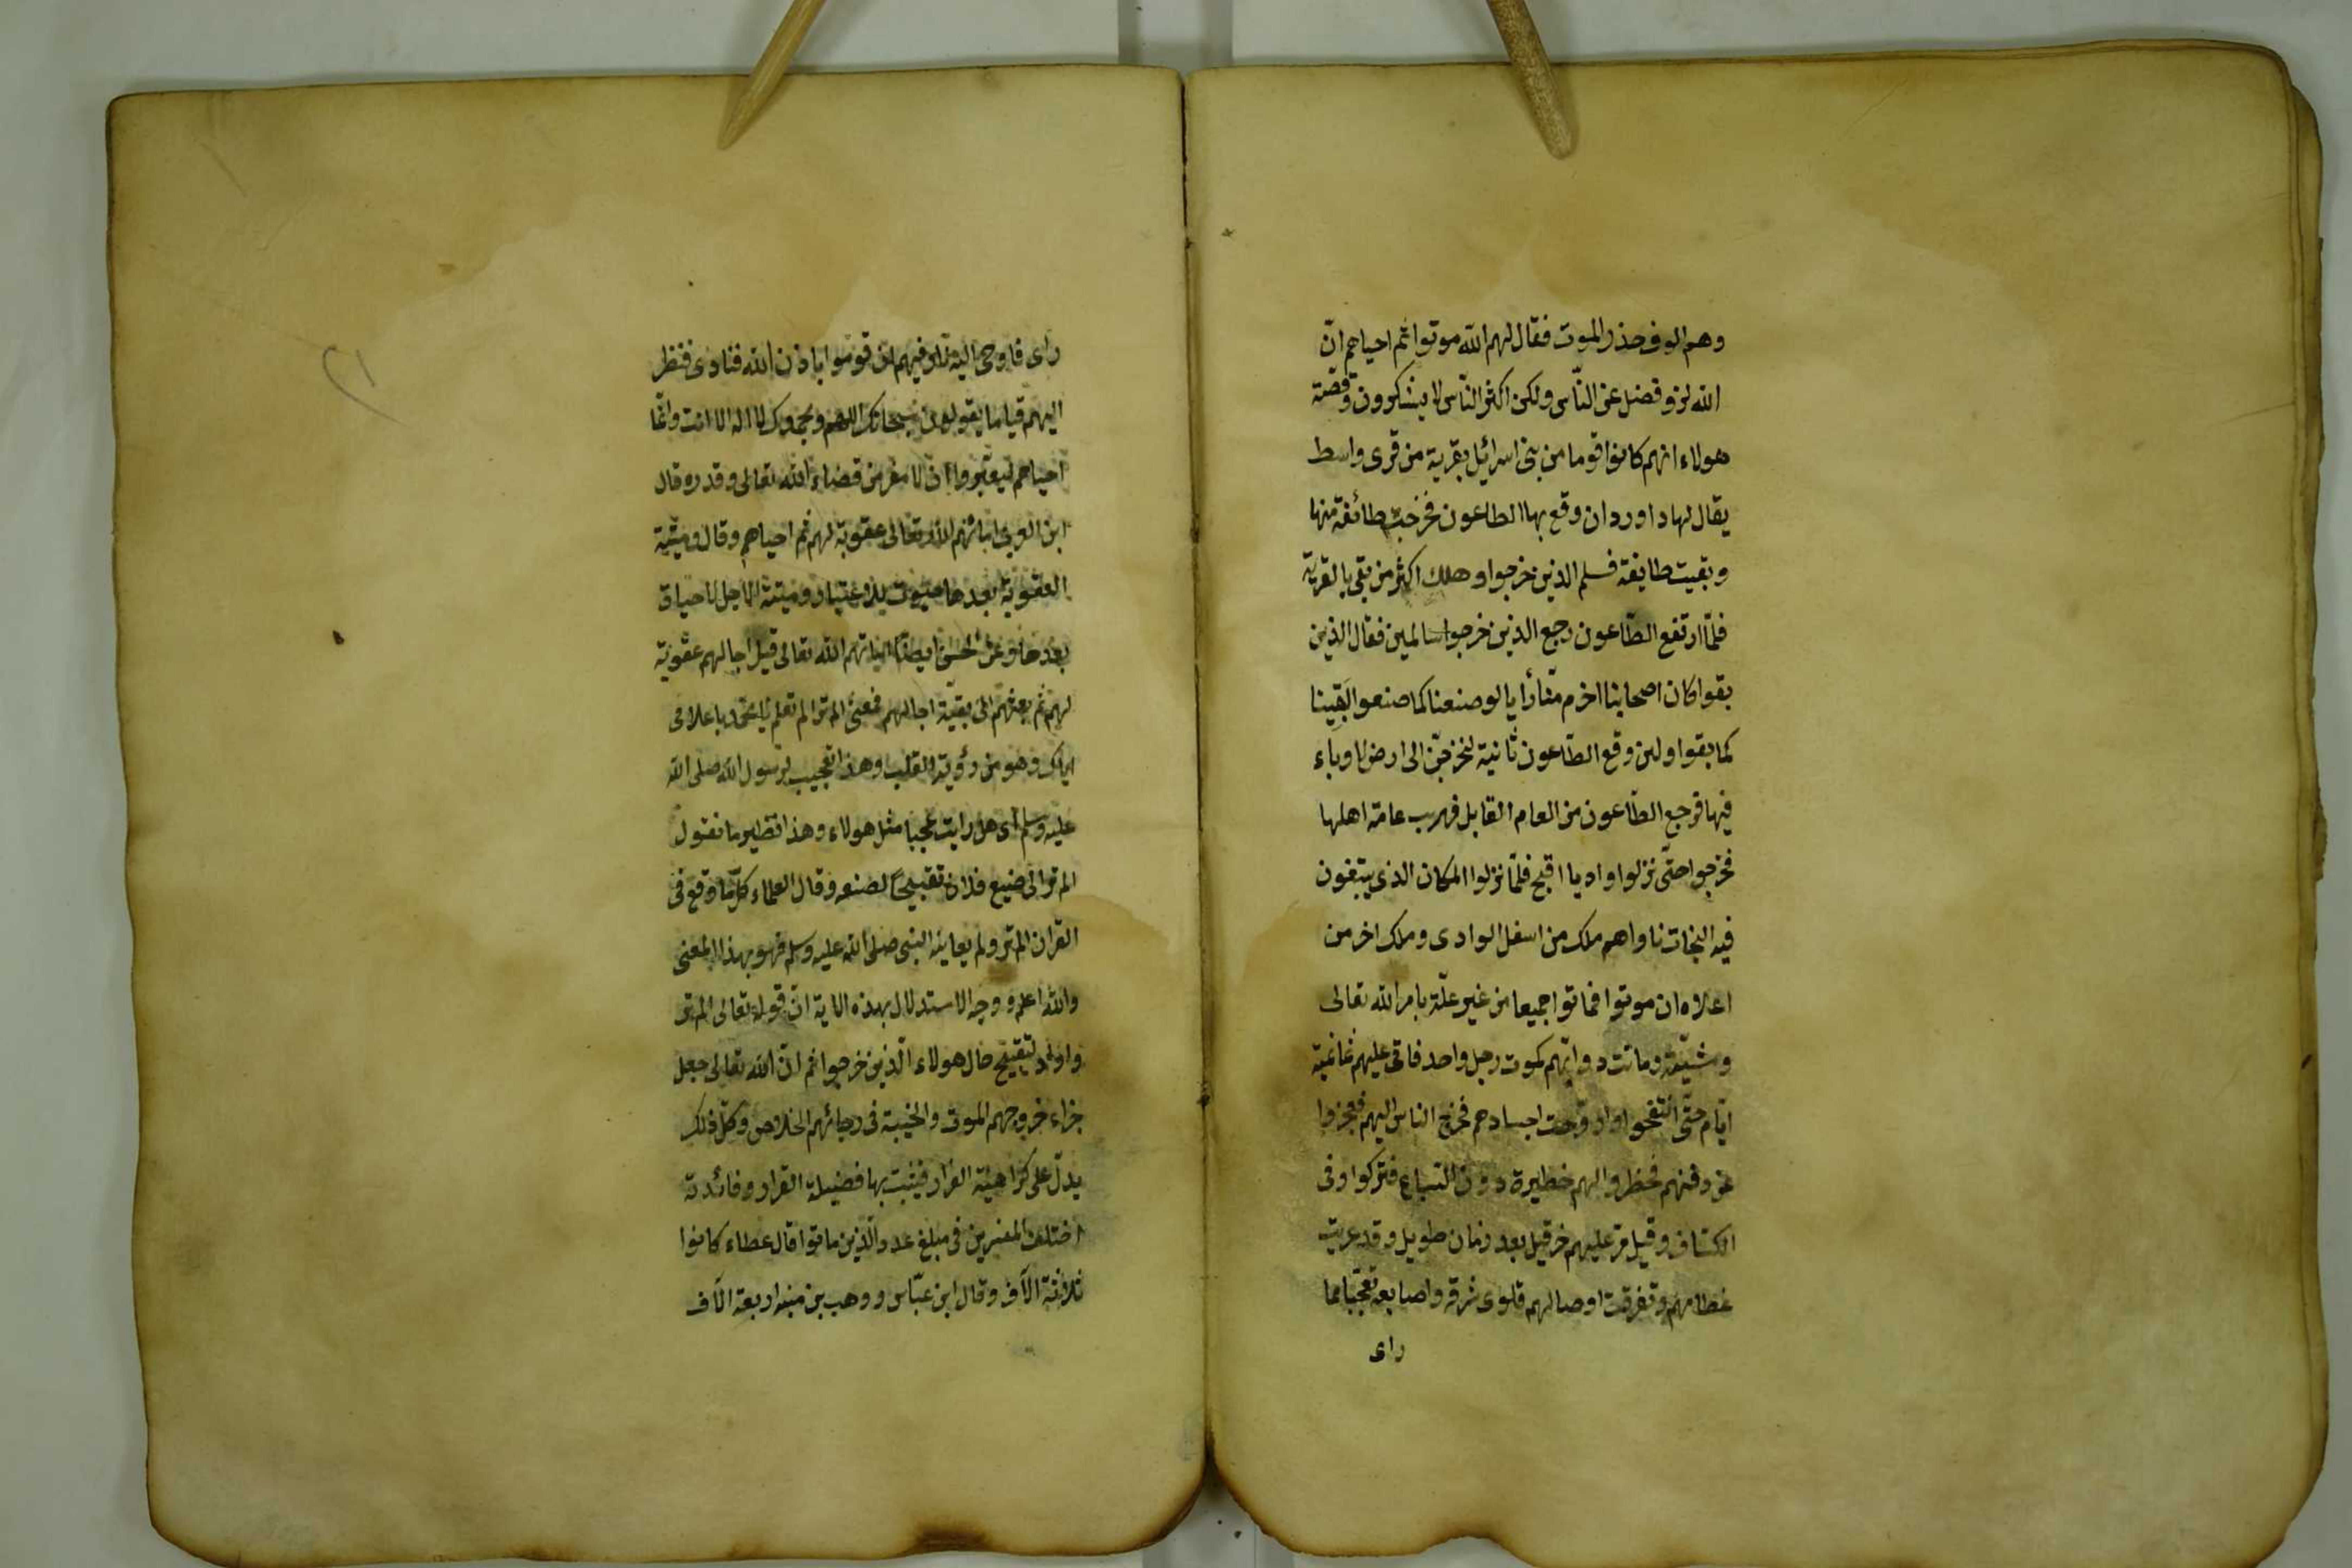 وهم الوف حذر الموت فقال لهم الله موتوا ثم احياهم انّ
الله لذو فضل على النّاس ولكن اكثر النّاس لا يشكرون وقصّة
هولاء انهم كانوا قوما من بنى اسرائيل بقرية من قرى واسط
يقال لها داوردان وقع بها الطاعون فخرجت طائفة منها
وبقيت طايفة فسلم الذين خرجوا وهلك اكثر من بقى بالقرية
فلمّا ارتفع الطّاعون رجع الذين خرجوا سالمين فقال الذين
بقوا كان اصحابنا احزم منّا رأيا لو صنعنا كما صنعوا لبقينا
كما بقوا ولين وقع الطّاعون ثانية لنخرجنّ الى ارض لا وباء
فيها فرجع الطّاعون من العام القابل فهرب عامّة اهلها
فخرجوا حتّى نزلوا واديا افيح فلمّا نزلوا المكان الذى يبتغون
فيه النجات ناداهم ملك من اسفل الوادى وملك اخر من
اعلاه ان موتوا فماتوا جميعا من غير علّة بامر الله تعالى
ومشيّته وماتت دوابّهم كموت رجل واحد فاتى عليهم ثمانية
ايّام حتّى انتفخوا واروحت اجسادهم فخرج الناس اليهم فعجزوا
عن دفنهم فحظروا لهم حظيرة دون السّباع فتركوا وفى
الكشاف وقيل مرّ عليهم حزقيل بعد زمان طويل وقد عريت
عظامهم وتفرقت اوصالهم فلوى شدقه واصابعه تعجّبا مما
راى
راى فاوحى اليه ناد فيهم ان قوموا باذن الله فنادى فنظر
اليهم قياما يقولون سبحانك اللهم وبحمدك لا اله الا انت وانّما
احياهم ليعتبروا ان لا مفر من قضاء الله تعالى وقدره قال
ابن العربى اماتهم الله تعالى عقوبة لهم ثم احياهم وقال وميتة
العقوبة بعدها حيوت للاعتبار وميتة الاجل لا حياة
بعدها وعن الحسن ايضا اماتهم الله تعالى قبل اجالهم عقوبة
لهم ثم بعثهم الى بقيّة اجالهم فمعنى الم تر الم تعلم يا محمّد باعلامى
ايّاك وهو من رؤية القلب وهذا تعجيب لرسول الله صلى الله
عليه وسلم اى هل رايت عجبا مثل هولاء وهذا نظير ما تقول
الم تر الى صنيع فلان تقبيحًا لصنعه وقال العلماء كلّ ما وقع فى
القران الم تر ولم يعاينه النبى صلى الله عليه وسلم فهو بهذا المعنى
والله اعلم ووجه الاستدلال بهذه الاية انّ قوله تعالى الم تر
وارد لتقبيح حال هولاء الّذين خرجوا ثم انّ الله تعالى جعل
جزاء خروجهم الموت والخيبة فى رجائهم الخلاص وكلّ ذلك
يدلّ على كراهية الفرار فيثبت بها فضيلة القرار وفائدته
اختلف المفسرين فى مبلغ عدد الّذين ماتوا قال عطاء كانوا
ثلاثة الآف وقال ابن عبّاس ووهب بن منبه اربعة الآف